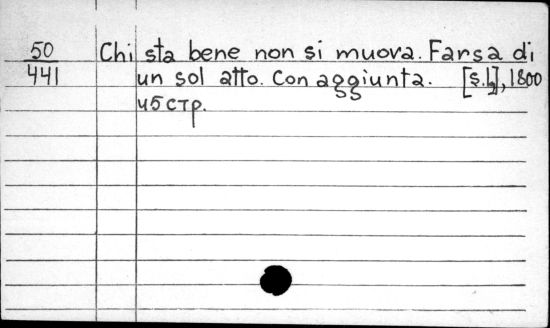 50 Chi sta bene non si muova. Farsa di
441 un sol atto. Con aggiunta. [s.l.], 1800
45 стр.